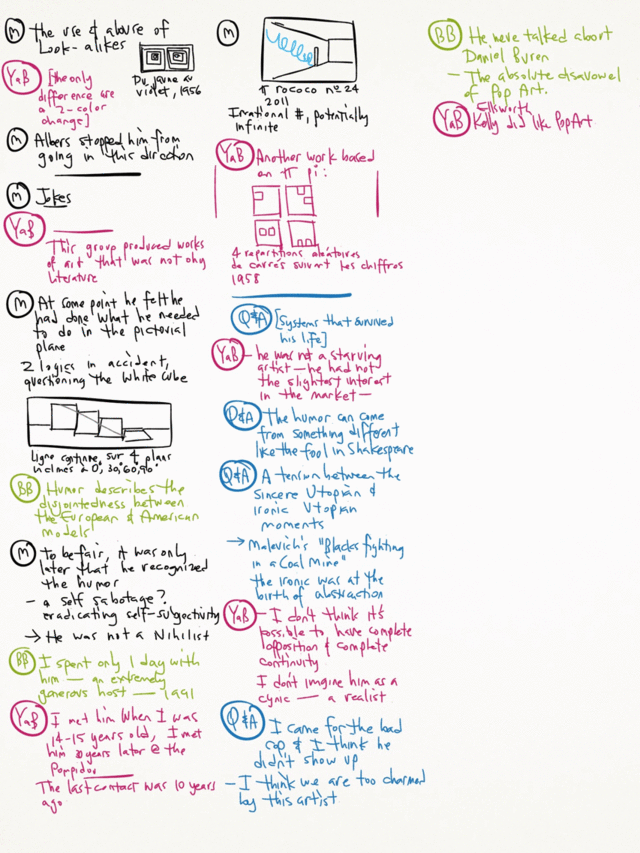 M the use & abuse of
Look-alikes
Du jaune au
violet, 1956
YaB [the only
difference are
a 2-color
change]
M Albers stopped him from
going in this direction
M Jokes
YaB
This group produced works
of art that was not only
literature
M At some point he felt he
had done what he needed
to do in the pictorial
plane
2 logics in accident,
questioning the white cube
Ligne continue, sur 4 plans
inclines à 0°, 30°, 60°, 90°
BB Humor describes the
disjointedness between
the European & American
models
M To be fair, it was only
later that he recognized
the humor
- a self sabotage?
eradicating self-subjectivity
→ He was not a Nihilist
BB I spent only 1 day with
him — an extremely
generous host — 1991
YaB I met him when I was
14-15 years old, I met
him years later @ the
Pompidou
The last contact was 10 years
ago.
M
π rococo nº 24
2011
Irrational #, potentially
infinite
YaB Another work based
on π pi:
4 repartitions aléatoires
de carrés suivant les chiffres
1958
Q&A [Systems that survived
his life]
YaB - he was not a starving
artist — he had not
the slightest interest
in the market —
Q&A The humor can come
from something different
like the fool in Shakespeare
Q&A A tension between the
Sincere Utopian &
ironic Utopian
moments
→ Malevich's "Blacks fighting
in a Coal Mine"
the ironic was at the
birth of abstraction
YaB - I don't think it's
possible to have complete
opposition & complete
continuity
I don't imagine him as a
cynic — a realist
Q&A I came for the bad
cop & I think he
didn't show up
- I think we are too charmed
by this artist
BB He never talked about
Daniel Buren
- The absolute disavowel
of Pop Art.
YaB Ellsworth
Kelly did like Pop Art